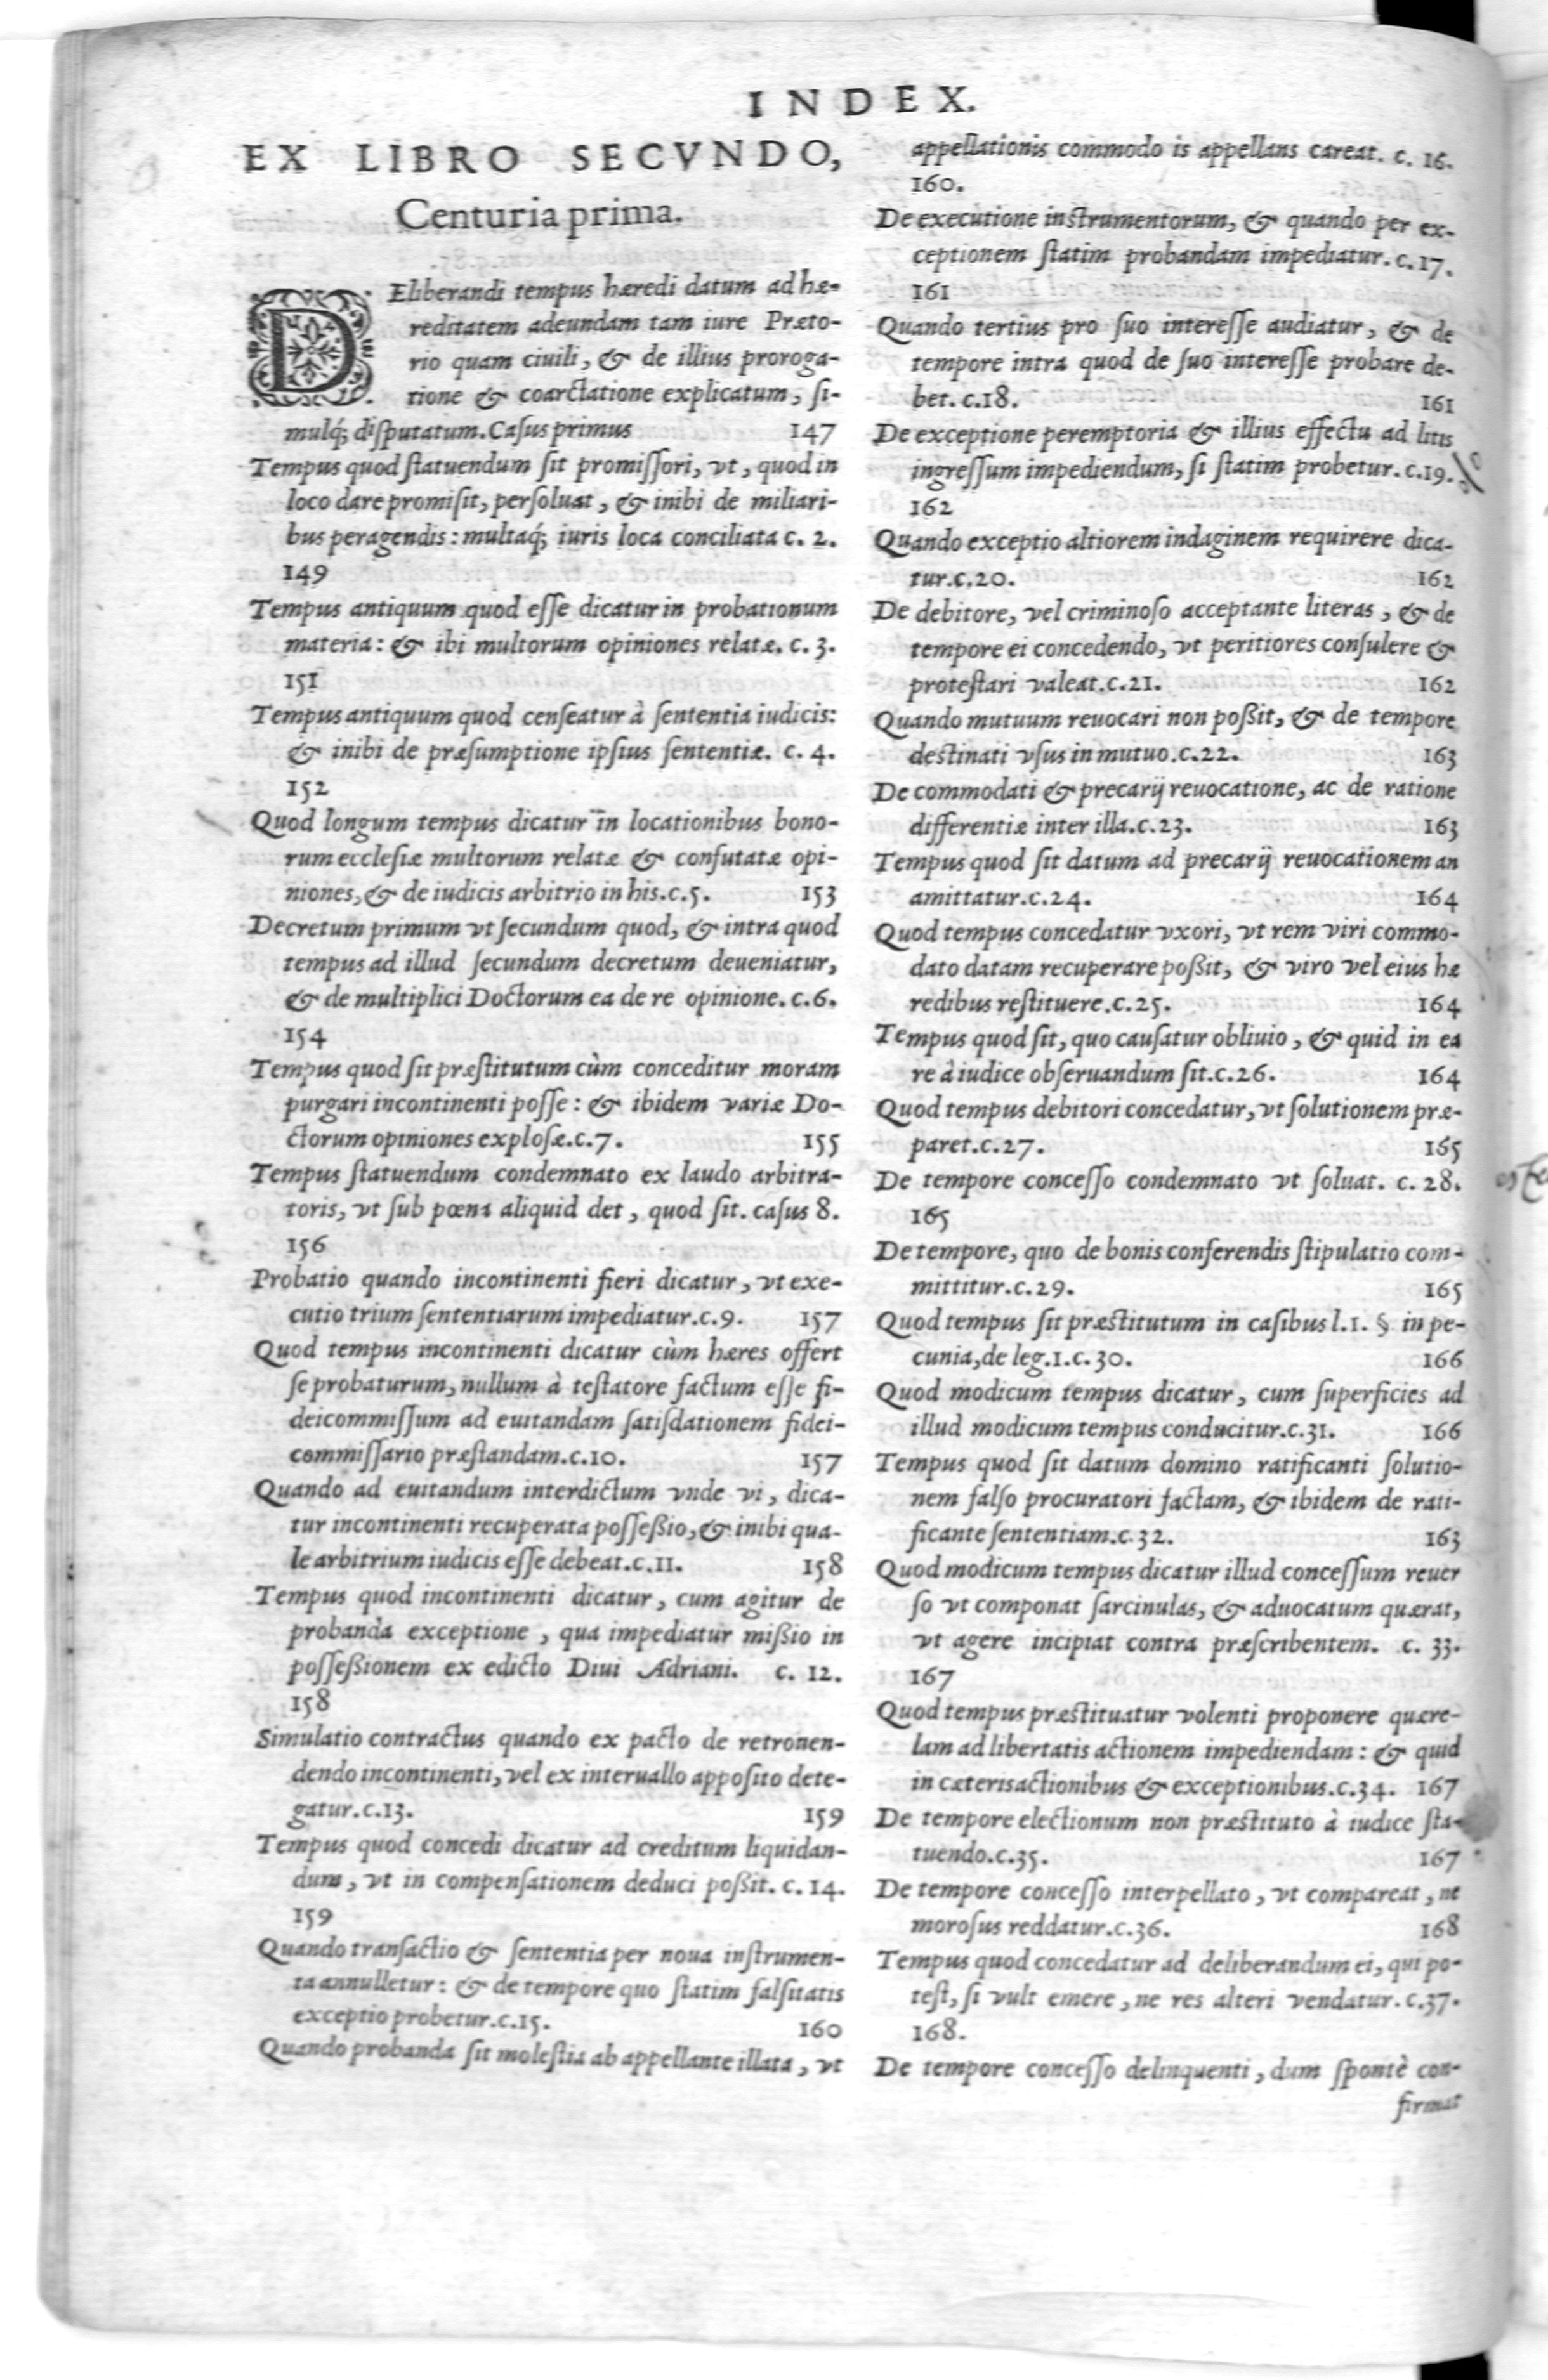 INDEX.
EX LIBRO SECVNDO,
Centuria prima.
DEliberandi tempus hæredi datum ad hæ-
reditatem adeundam tam iure Præto-
rio quam ciuili, & de illius proroga-
tione & coarctatione explicatum, ſi-
mulq́; diſputatum. Caſus primus 147
Tempus quod ſtatuendum ſit promiſſori, vt, quod in
loco dare promiſit, perſoluat, & inibi de miliari-
bus peragendis: multaq́; iuris loca conciliata c. 2.
149
Tempus antiquum quod eſſe dicatur in probationum
materia: & ibi multorum opiniones relatæ. c. 3.
151
Tempus antiquum quod cenſeatur à ſententia iudicis:
& inibi de præſumptione ipſius ſententiæ. c. 4.
152
Quod longum tempus dicatur in locationibus bono-
rum eccleſiæ multorum relatæ & confutatæ opi-
niones, & de iudicis arbitrio in his. c. 5. 153
Decretum primum vt ſecundum quod, & intra quod
tempus ad illud ſecundum decretum deueniatur,
& de multiplici Doctorum ea de re opinione. c. 6.
154
Tempus quod ſit præſtitutum cùm conceditur moram
purgari incontinenti poſſe: & ibidem variæ Do-
ctorum opiniones exploſæ. c. 7. 155
Tempus ſtatuendum condemnato ex laudo arbitra-
toris, vt ſub pœna aliquid det, quod ſit. caſus 8.
156
Probatio quando incontinenti fieri dicatur, vt exe-
cutio trium ſententiarum impediatur. c. 9. 157
Quod tempus incontinenti dicatur cùm hæres offert
ſe probaturum, nullum à teſtatore factum eſſe fi-
deicommiſſum ad euitandam ſatiſdationem fidei-
commiſſario præſtandam. c. 10. 157
Quando ad euitandum interdictum vnde vi, dica-
tur incontinenti recuperata poſſeßio, & inibi qua-
le arbitrium iudicis eſſe debeat. c. 11. 158
Tempus quod incontinenti dicatur, cum agitur de
probanda exceptione, qua impediatur mißio in
poſſeßionem ex edicto Diui Adriani. c. 12.
158
Simulatio contractus quando ex pacto de retrouen-
dendo incontinenti, vel ex interuallo appoſito dete-
gatur. c. 13. 159
Tempus quod concedi dicatur ad creditum liquidan-
dum, vt in compenſationem deduci poßit. c. 14.
159
Quando tranſactio & ſententia per noua inſtrumen-
ta annulletur: & de tempore quo ſtatim falſitatis
exceptio probetur. c. 15. 160
Quando probanda ſit moleſtia ab appellante illata, vt
appellationis commodo is appellans careat. c. 16.
160.
De executione inſtrumentorum, & quando per ex-
ceptionem ſtatim probandam impediatur. c. 17.
161
Quando tertius pro ſuo intereſſe audiatur, & de
tempore intra quod de ſuo intereſſe probare de-
bet. c. 18. 161
De exceptione peremptoria & illius effectu ad litis
ingreſſum impediendum, ſi ſtatim probetur. c. 19.
162
Quando exceptio altiorem indaginem requirere dica-
tur. c. 20. 162
De debitore, vel criminoſo acceptante literas, & de
tempore ei concedendo, vt peritiores conſulere &
proteſtari valeat. c. 21. 162
Quando mutuum reuocari non poßit, & de tempore
deſtinati vſus in mutuo. c. 22. 163
De commodati & precarij reuocatione, ac de ratione
differentiæ inter illa. c. 23. 163
Tempus quod ſit datum ad precarij reuocationem an
amittatur. c. 24. 164
Quod tempus concedatur vxori, vt rem viri commo-
dato datam recuperare poßit, & viro vel eius hæ
redibus reſtituere. c. 25. 164
Tempus quod ſit, quo cauſatur obliuio, & quid in ea
re à iudice obſeruandum ſit. c. 26. 164
Quod tempus debitori concedatur, vt ſolutionem præ-
paret. c. 27. 165
De tempore conceſſo condemnato vt ſoluat. c. 28.
165
De tempore, quo de bonis conferendis ſtipulatio com-
mittitur. c. 29. 165
Quod tempus ſit præſtitutum in caſibus l. 1. § in pe-
cunia, de leg. 1. c. 30. 166
Quod modicum tempus dicatur, cum ſuperficies ad
illud modicum tempus conducitur. c. 31. 166
Tempus quod ſit datum domino ratificanti ſolutio-
nem falſo procuratori factam, & ibidem de rati-
ficante ſententiam. c. 32. 163
Quod modicum tempus dicatur illud conceſſum reuer
ſo vt componat ſarcinulas, & aduocatum quærat,
vt agere incipiat contra præſcribentem. c. 33.
167
Quod tempus præſtituatur volenti proponere quære-
lam ad libertatis actionem impediendam: & quid
in cæteris actionibus & exceptionibus. c. 34. 167
De tempore electionum non præſtituto à iudice ſta-
tuendo. c. 35. 167
De tempore conceſſo interpellato, vt compareat, ne
moroſus reddatur. c. 36. 168
Tempus quod concedatur ad deliberandum ei, qui po-
teſt, ſi vult emere, ne res alteri vendatur. c. 37.
168.
De tempore conceſſo delinquenti, dum ſpontè con-
firmat